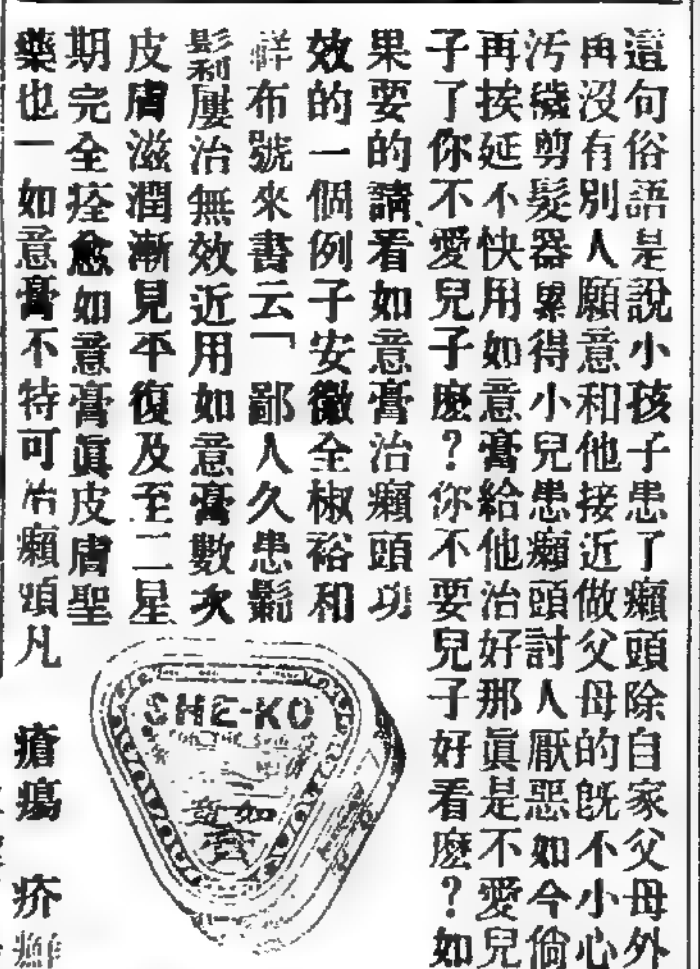 這句俗語是說小孩子患了癩頭除自家父母外
再沒有別人願意和他接近做父母的旣不小心
汚穢剪髮器累得小兒患癩頭討人厭惡如今倘
再挨延不快用如意膏給他治好那眞是不愛兒
子了你不愛兒子麽？你不要兒子好看麽？如
果要的請看如意膏治癩頭功
效的一個例子安徽全椒裕和
祥布號來書云「鄙人久患鬎
鬁屢治無效近用如意膏數次
皮膚滋潤漸見平復及至二星
期完全痊愈如意膏眞皮膚聖
藥也一如意膏不特可治癩頭凡
瘡瘍 疥癬
CHE-KO
FOR THE
如意
膏